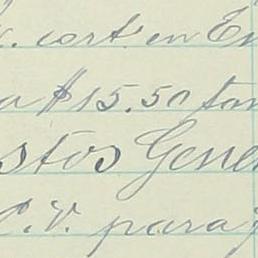 cort. en En
a $15.50 ton
stos Gene
C.V. para